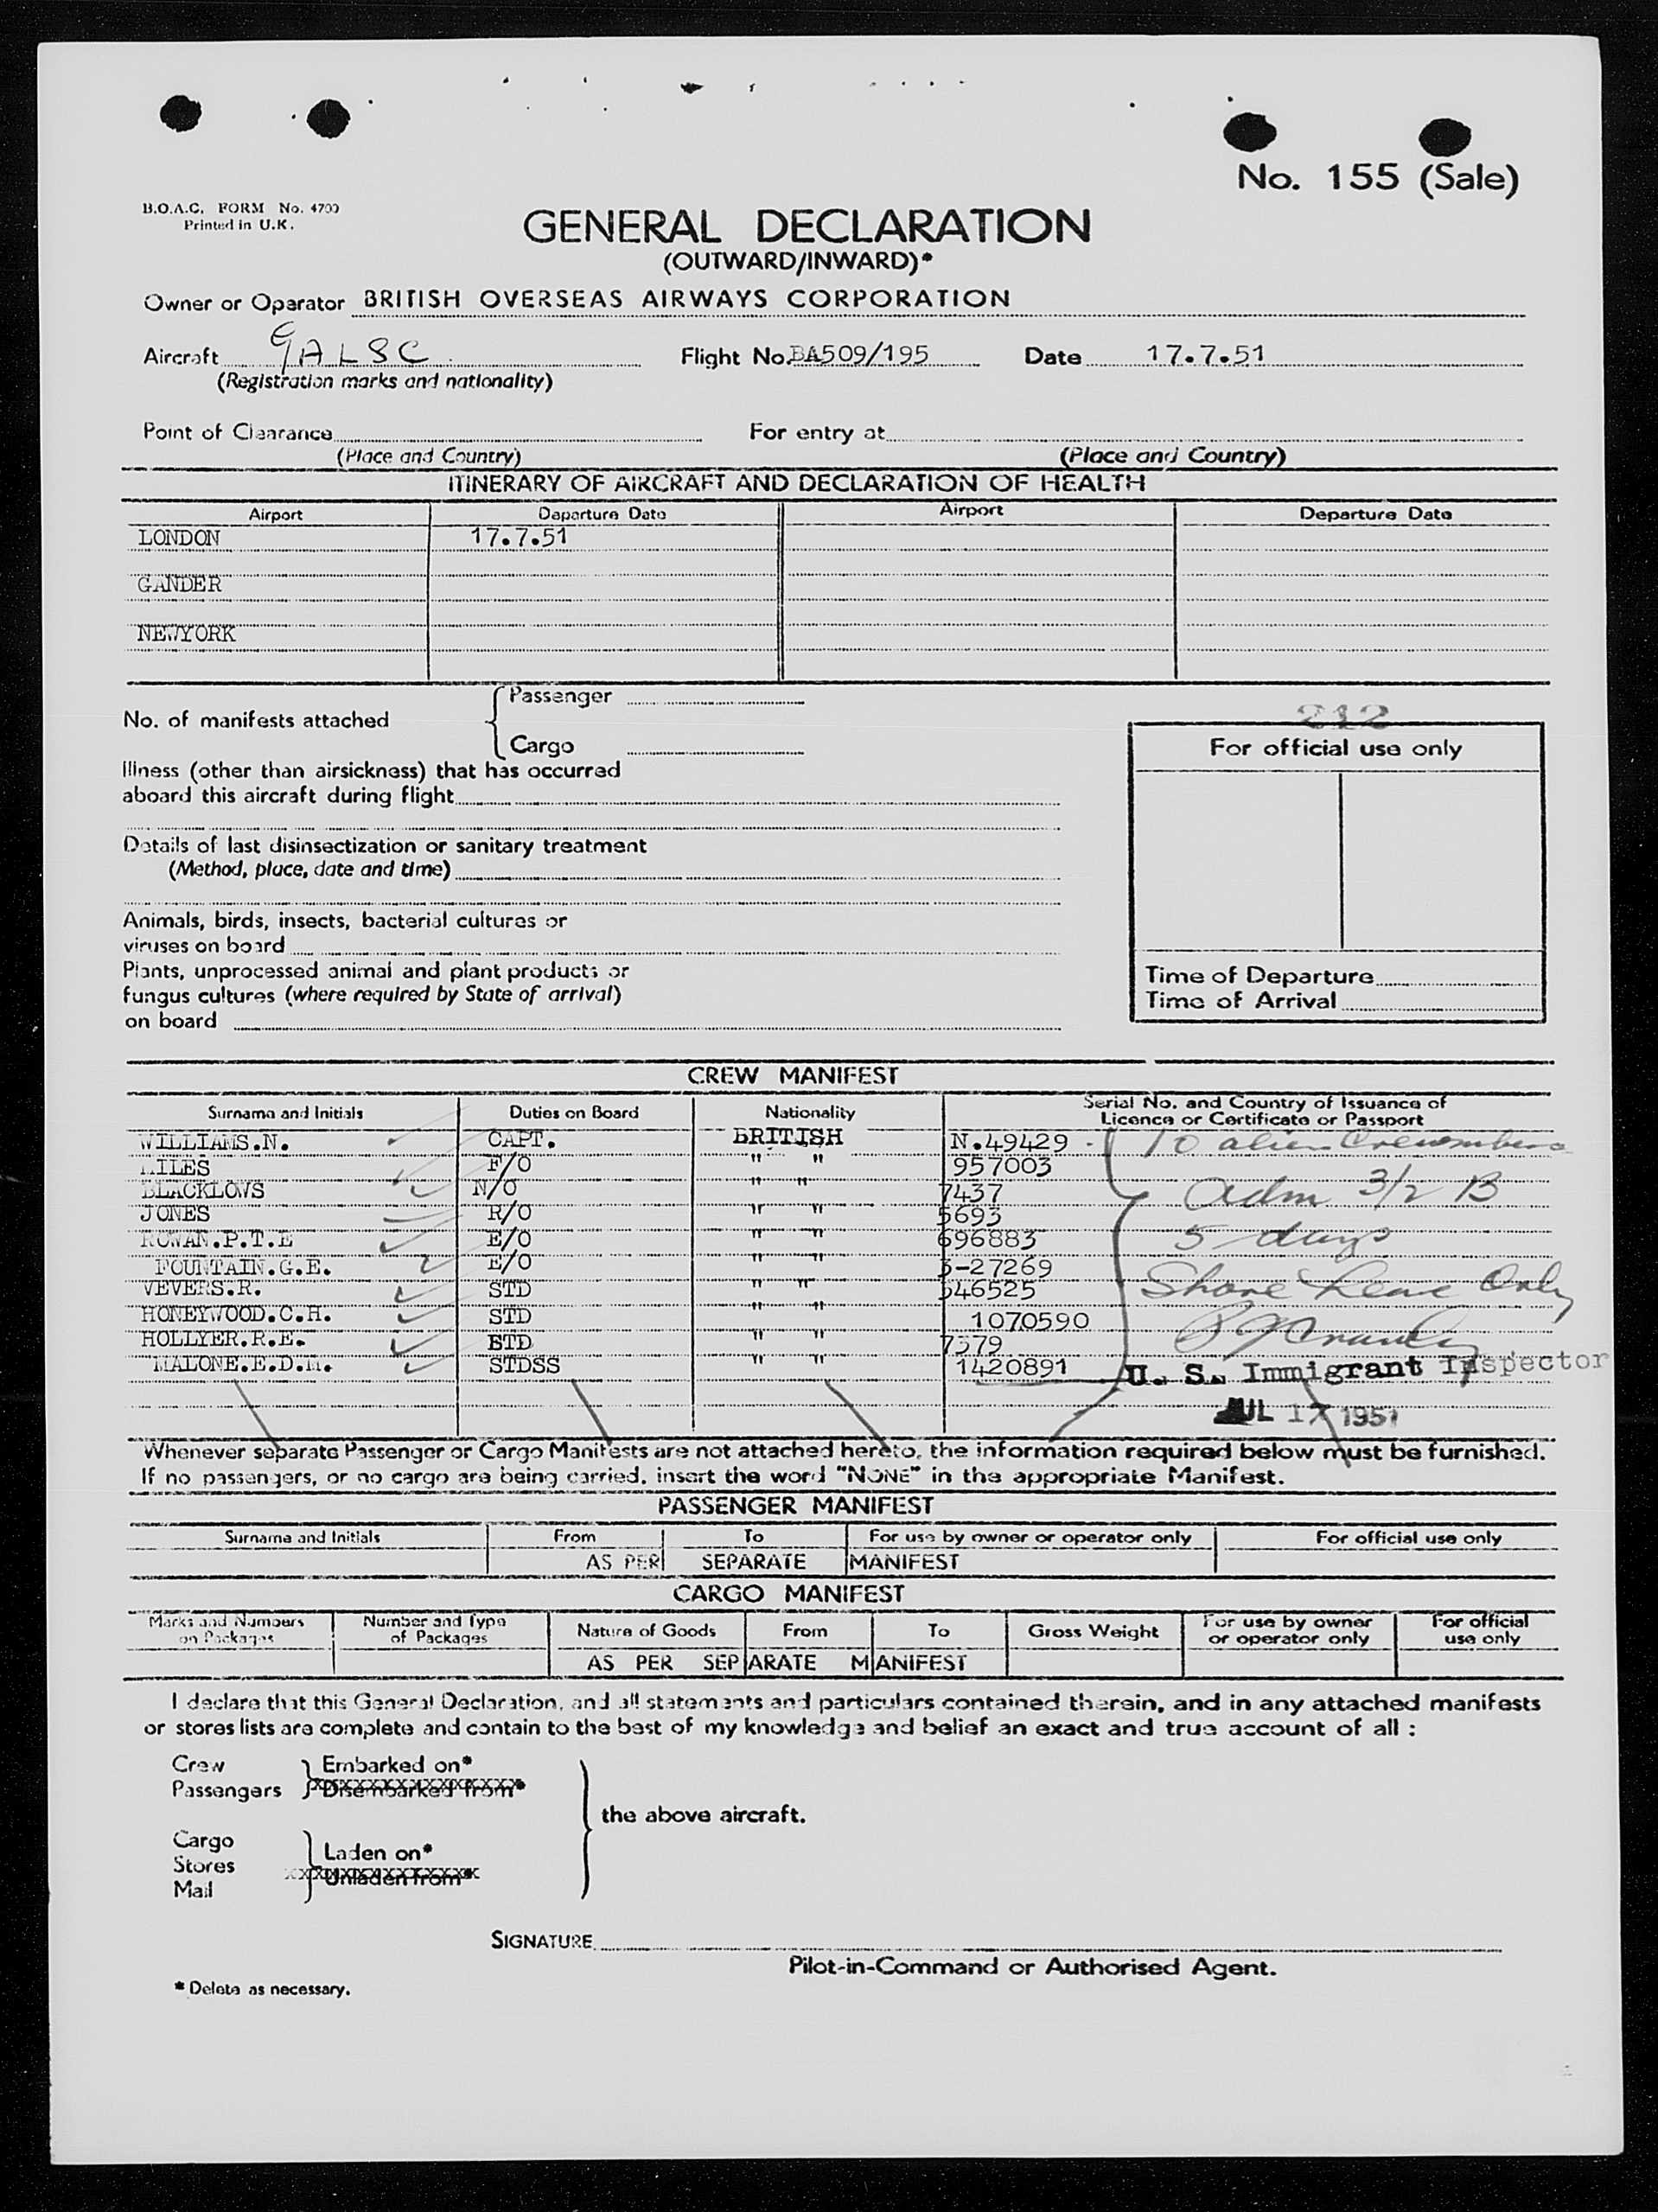 No. 155 (Sale)
B.O.A.C. FORM No. 4700
Printed in U.K.
GENERAL DECLARATION
(OUTWARD/INWARD)*
Owner or Operator BRITISH OVERSEAS AIRWAYS CORPORATION
Aircraft GALSC Flight No. BA509/195 Date 17.7.51
(Registration marks and nationality)
Point of Clearance For entry at
(Place and Country) (Place and Country)
ITINERARY OF AIRCRAFT AND DECLARATION OF HEALTH
Airport Departure Date Airport Departure Date
LONDON 17.7.51
GANDER
NEWYORK
No. of manifests attached { Passenger
Cargo
212
For official use only
Illness (other than airsickness) that has occurred
aboard this aircraft during flight
Details of last disinsectization or sanitary treatment
(Method, place, date and time)
Animals, birds, insects, bacterial cultures or
viruses on board
Plants, unprocessed animal and plant products or
fungus cultures (where required by State of arrival)
on board
Time of Departure
Time of Arrival
CREW MANIFEST
Surname and Initials Duties on Board Nationality Serial No. and Country of Issuance of
Licence or Certificate or Passport
WILLIAMS.N. CAPT. BRITISH N.49429 10 alien Crewmembers
MILES F/O " " 957003
BLACKLOWS N/O " " 7437 Adm 3/2 B
JONES R/O " " 5693
ROWAN.P.T.E E/O " " 696883 5 days
FOUNTAIN.G.E. E/O " " 3-27269
VEVERS.R. STD " " 546525 Shore Leave Only
HONEYWOOD.C.H. STD " " 1070590
HOLLYER.R.E. STD " " 7379
MALONE.E.D.M. STDSS " " 1420891 U. S. Immigrant Inspector
JUL 17 1951
Whenever separate Passenger or Cargo Manifests are not attached hereto, the information required below must be furnished.
If no passengers, or no cargo are being carried, insert the word "NONE" in the appropriate Manifest.
PASSENGER MANIFEST
Surname and Initials From To For use by owner or operator only For official use only
AS PER SEPARATE MANIFEST
CARGO MANIFEST
Marks and Numbers on Packages Number and Type of Packages Nature of Goods From To Gross Weight For use by owner or operator only For official use only
AS PER SEPARATE MANIFEST
I declare that this General Declaration, and all statements and particulars contained therein, and in any attached manifests
or stores lists are complete and contain to the best of my knowledge and belief an exact and true account of all :
Crew } Embarked on*
Passengers } Disembarked from*
the above aircraft.
Cargo
Stores } Laden on*
Mail } Unladen from*
SIGNATURE
Pilot-in-Command or Authorised Agent.
* Delete as necessary.